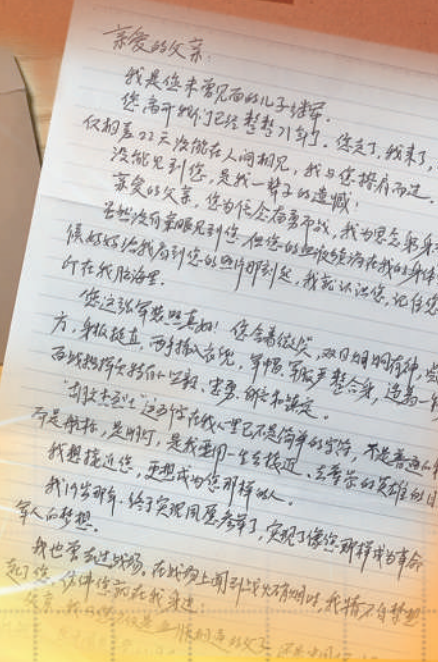 亲爱的父亲：
我是您未曾见面的儿子继军。
您离开我们已经整整71年了。您走了，我来了，
仅相差22天没能在人间相见，我与您擦肩而过。
没能见到您，是我一辈子的遗憾！
亲爱的父亲，您为信念而勇于战，我为思念
虽然没有亲眼见到您，但您的血液流淌在我的身体
候好好给我看到您的照片那刻起，我就认识您，记住您
印在我脑海里。
您这张军装照真帅！您含着微笑，双目炯炯有神，
方，身板挺直，两手插入衣兜，军帽、军服严整合身，
百战指挥员特有的坚毅、忠勇、
烈士"这五个字在我心里已不是简单的字符，不是普通的
而是航标，是明灯，是我要用一生去接近、去尊崇的英雄
我想接近您，更想成为您那样的人。
我19岁那年，终于实现夙愿参军了，实现了像您那样成为革命
军人的梦想。
我也曾去过战场。在战场上闻到战火硝烟时，我情不自禁想
起了您，仿佛您就在我身边！
父亲，我